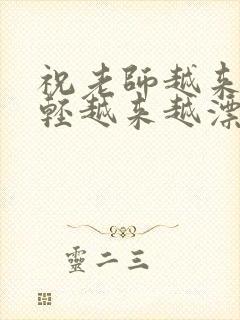 祝老師越来
輕越来越漂
靈二三